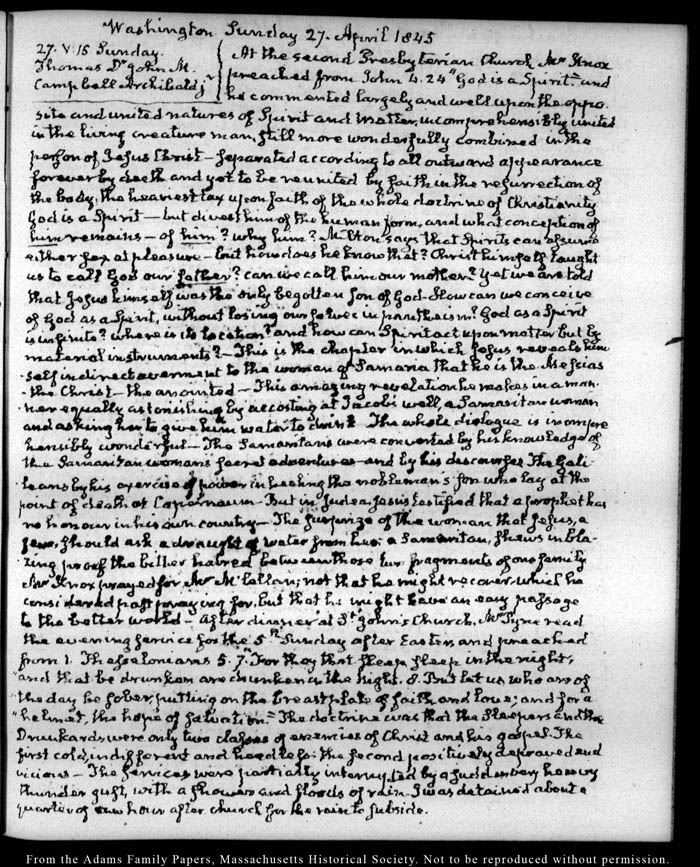 Washington Sunday 27. April 1845
27. V:15 Sunday.
Thomas Dr John M.
Campbell Archibald j
At the second Presbyterian Church Mr Knox
preached from John 4.24 "God is a Spirit" and
he commented largely and well upon the oppo-
site and united natures of Spirit and matter, incomprehensibly united
in the living creature man, still more wonderfully combined in the
person of Jesus Christ — separated according to all outward appearance
forever by death and yet to be reunited by faith in the resurrection of
the body, the heaviest tax upon faith of the whole doctrine of Christianity
God is a Spirit — but divest him of the human form, and what conception of
him remains — of him? why him? Milton says that Spirits can assume
either sex at pleasure — but how does he know that? Christ himself taught
us to call God our father? can we call him our mother? Yet we are told
that Jesus himself was the only begotten son of God. How can we conceive
of God as a Spirit, without losing ourselves in pantheism? God as a Spirit
is infinite? where is its location? and how can Spirit act upon matter but by
material instruments? — This is the chapter in which Jesus reveals him-
self in direct averment to the woman of Samaria that he is the Messias
- the Christ — the anointed — This amazing revelation he makes in a man-
ner equally astonishing by accosting at Jacob's well, a Samaritan woman
and asking her to give him water to drink — The whole dialogue is incompre-
hensibly wonderful — The Samaritans were converted by his knowledge of
the Samaritan woman's secret adventures — and by his discourses. The Gali-
leans by his exercise of power in healing the nobleman's son who lay at the
point of death at Capernaum — But in Judea Jesus testified that a prophet has
no honour in his own country — The surprize of the woman that Jesus, a
Jew, should ask a draught of water from her a Samaritan, shews in bla-
zing proof the bitter hatred between those two fragments of one family
Mr Knox prayed for Mr McClellan; not that he might recover, which he
considered past praying for, but that he might have an easy passage
to the better world — After dinner at St John's Church, Mr Pyne read
the evening service for the 5th Sunday after Easter, and preached
from 1. Thessalonians 5.7. "For they that sleep sleep in the night,
"and that be drunken are drunken in the night. 8. But let us who are of
"the day be sober, putting on the breastplate of faith and love; and for a
"helmet, the hope of salvation." The doctrine was that the sleepers and the
Drunkards were only two classes of enemies of Christ and his gospel. The
first cold, indifferent and heedless: the second positively depraved and
vicious — The services were partially interrupted by a sudden very heavy
thunder gust, with a shower and floods of rain. I was detained about a
quarter of an hour after church for the rain to subside.
From the Adams Family Papers, Massachusetts Historical Society. Not to be reproduced without permission.